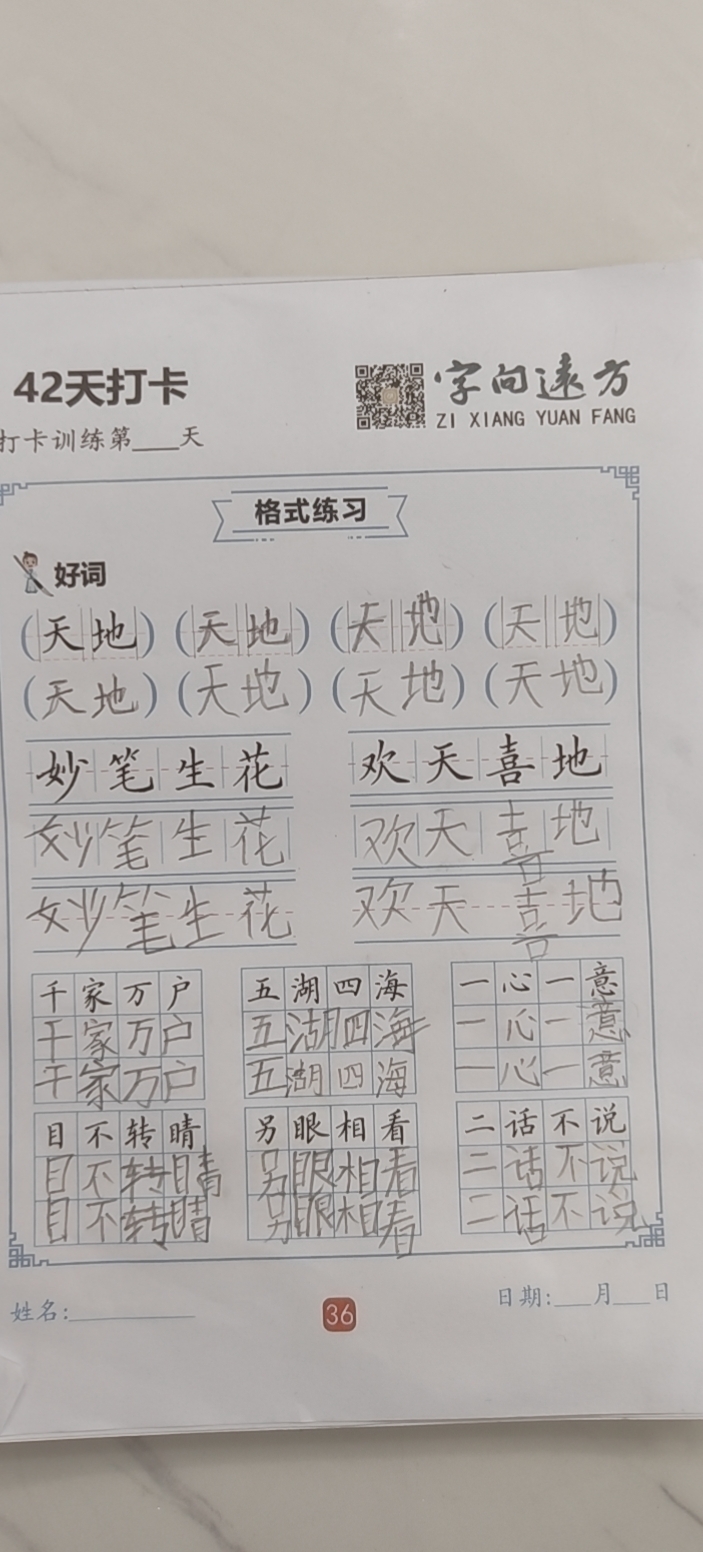 42天打卡
字向远方
ZI XIANG YUAN FANG
打卡训练第____天
格式练习
好词
(天地) (天地) (天地) (天地)
(天地) (天地) (天地) (天地)
妙笔生花 欢天喜地
妙笔生花 欢天喜地
妙笔生花 欢天喜地
千家万户 五湖四海 一心一意
千家万户 五湖四海 一心一意
千家万户 五湖四海 一心一意
目不转睛 另眼相看 二话不说
目不转睛 另眼相看 二话不说
目不转睛 另眼相看 二话不说
姓名:__________ 36 日期:___月___日